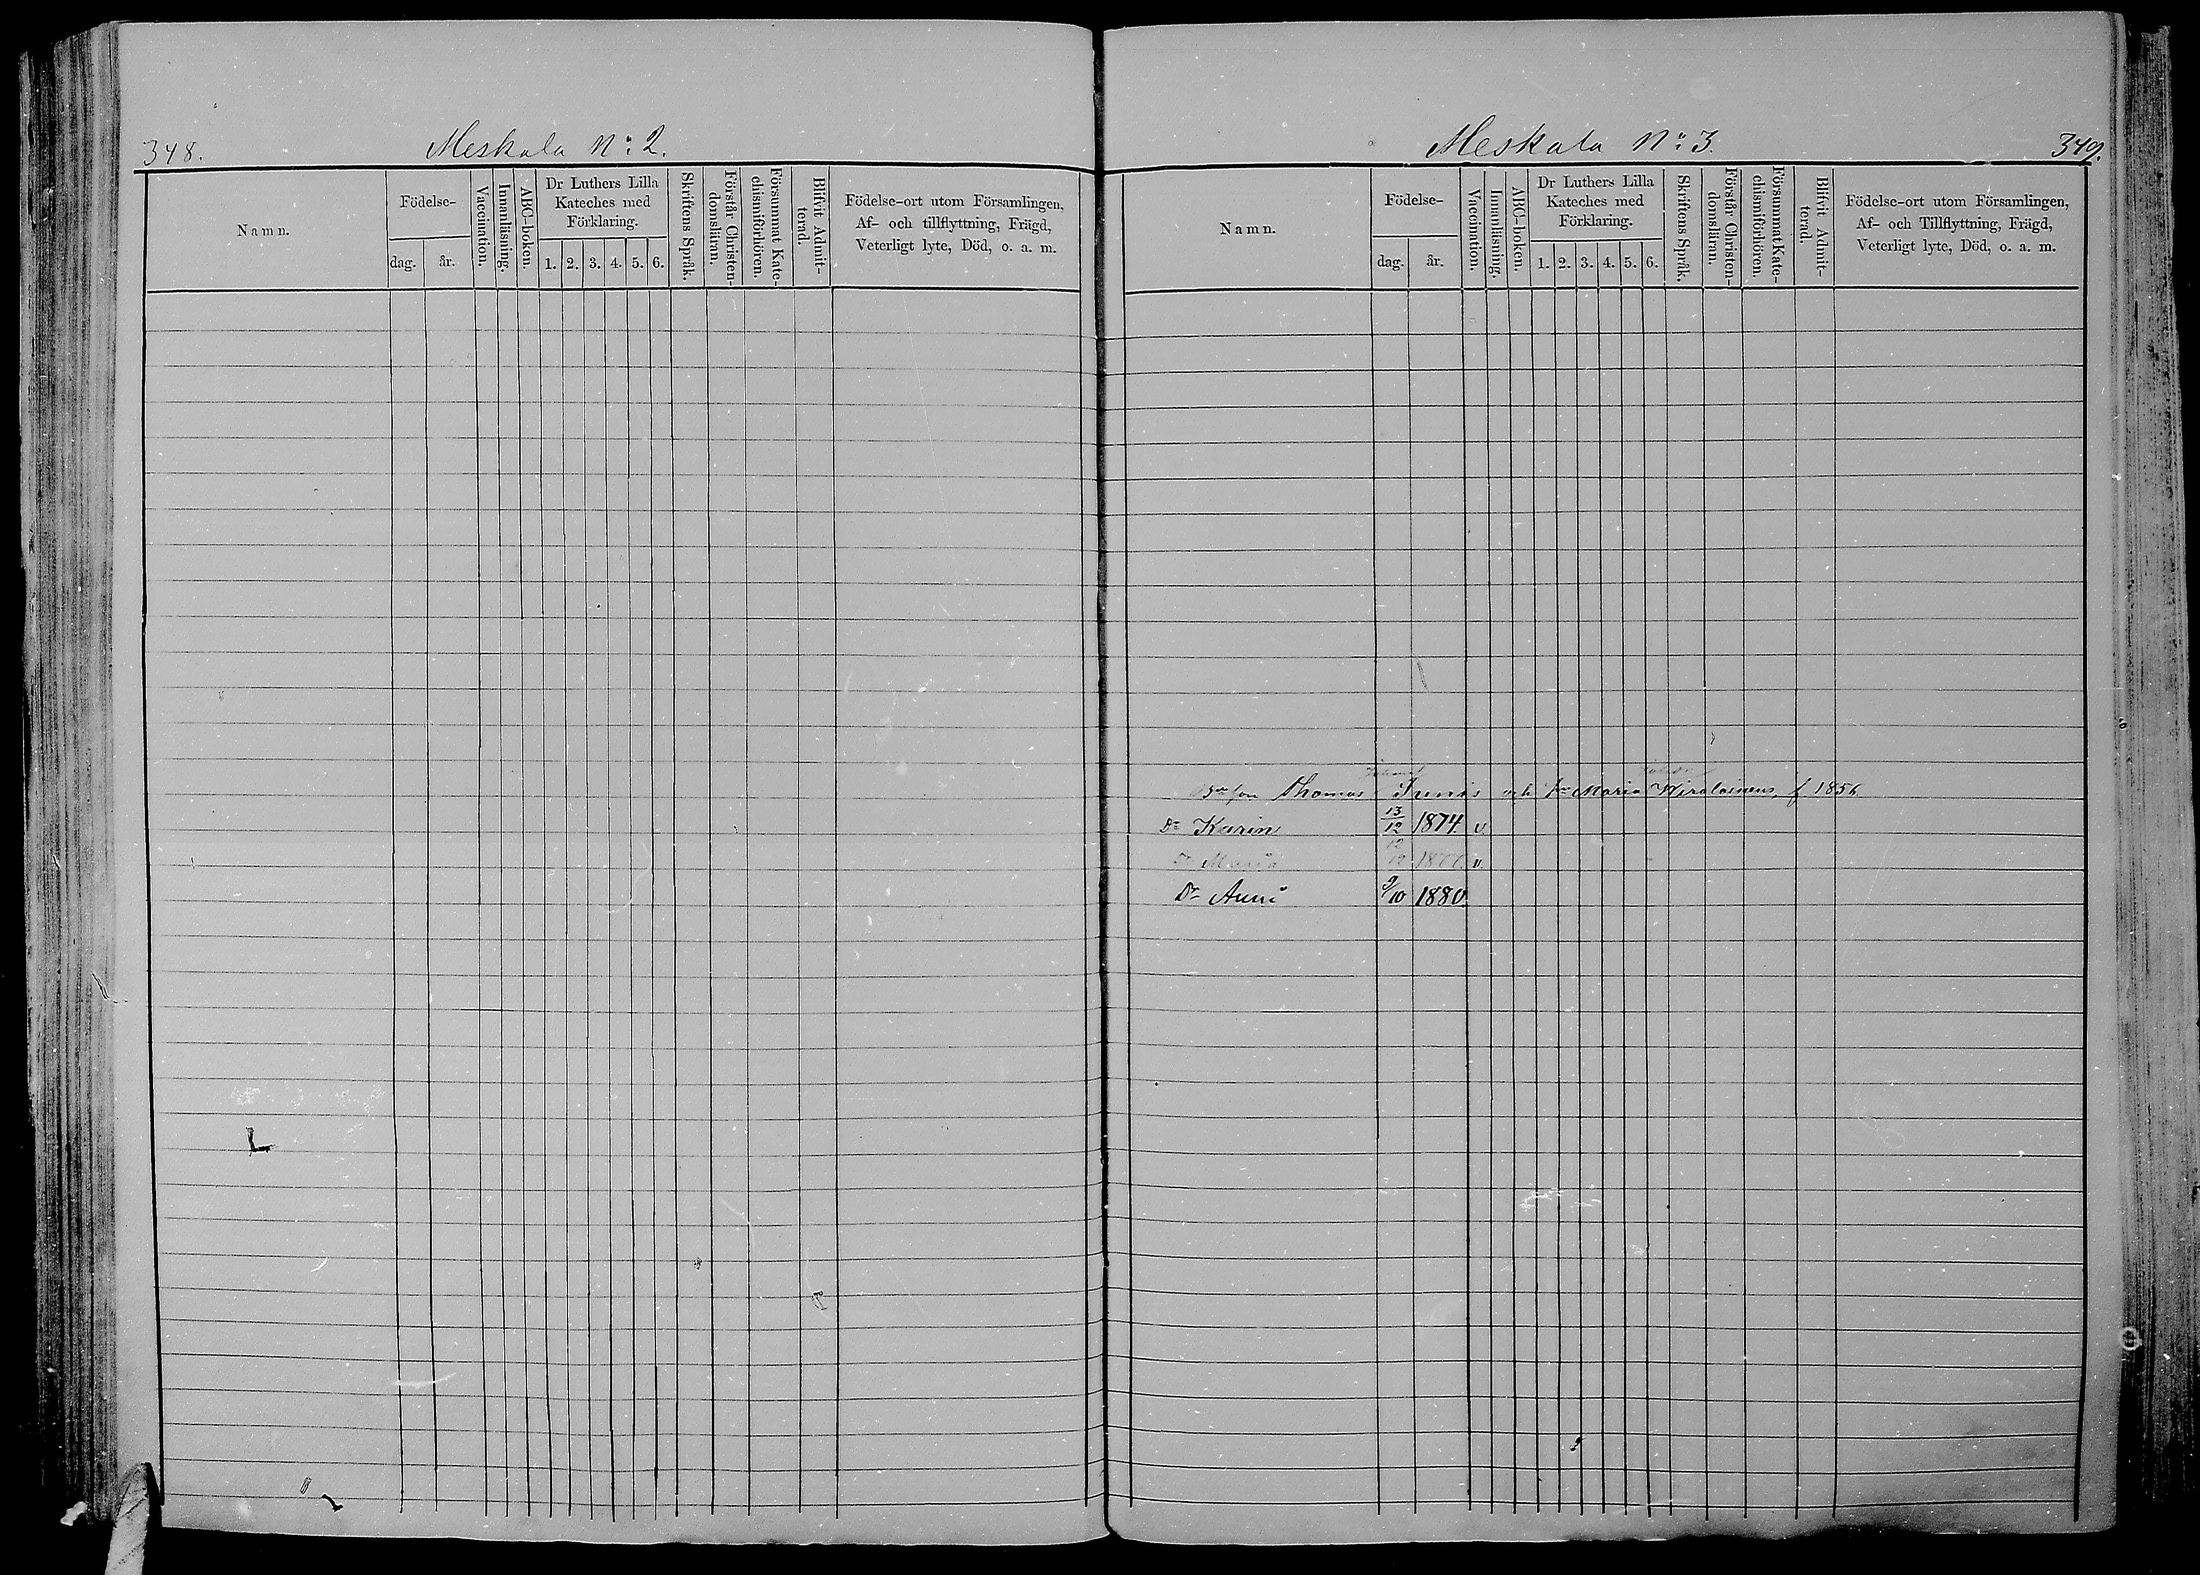 348.
Meskala No: 2.
Namn.
Födelse-
dag.
år.
Vaccination.
Innanläsning.
ABC-boken.
Dr Luthers Lilla
Kateches med
Förklaring.
1. 2. 3. 4. 5. 6.
Skriftens Språk.
Förstår Christen-
domsläran.
Försummat Kate-
chismiförhören.
Blifvit Admit-
terad.
Födelse-ort utom Församlingen,
Af- och tillflyttning, Frägd,
Veterligt lyte, Död, o. a. m.
Meskala No: 3.
349.
Namn.
Födelse-
dag.
år.
Vaccination.
Innanläsning.
ABC-boken.
Dr Luthers Lilla
Kateches med
Förklaring.
1. 2. 3. 4. 5. 6.
Skriftens Språk.
Förstår Christen-
domsläran.
Försummat Kate-
chismiförhören.
Blifvit Admit-
terad.
Födelse-ort utom Församlingen,
Af- och Tillflyttning, Frägd,
Veterligt lyte, Död, o. a. m.
Thomas och Maria f 1856
Dr Karin 13/12 1874. v
Dr Maria v.
Dr Anni 9/10 1880.